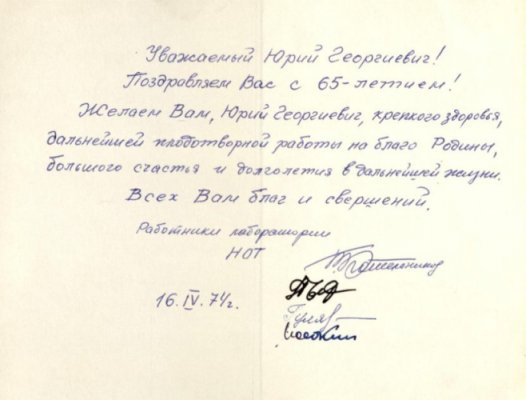 Уважаемый Юрий Георгиевич!
Поздравляем Вас с 65-летием!
Желаем Вам, Юрий Георгиевич, крепкого здоровья,
дальнейшей плодотворной работы на благо Родины,
большого счастья и долголетия в дальнейшей жизни.
Всех Вам благ и свершений.
Работники лаборатории
НОТ
16.IV.74г.